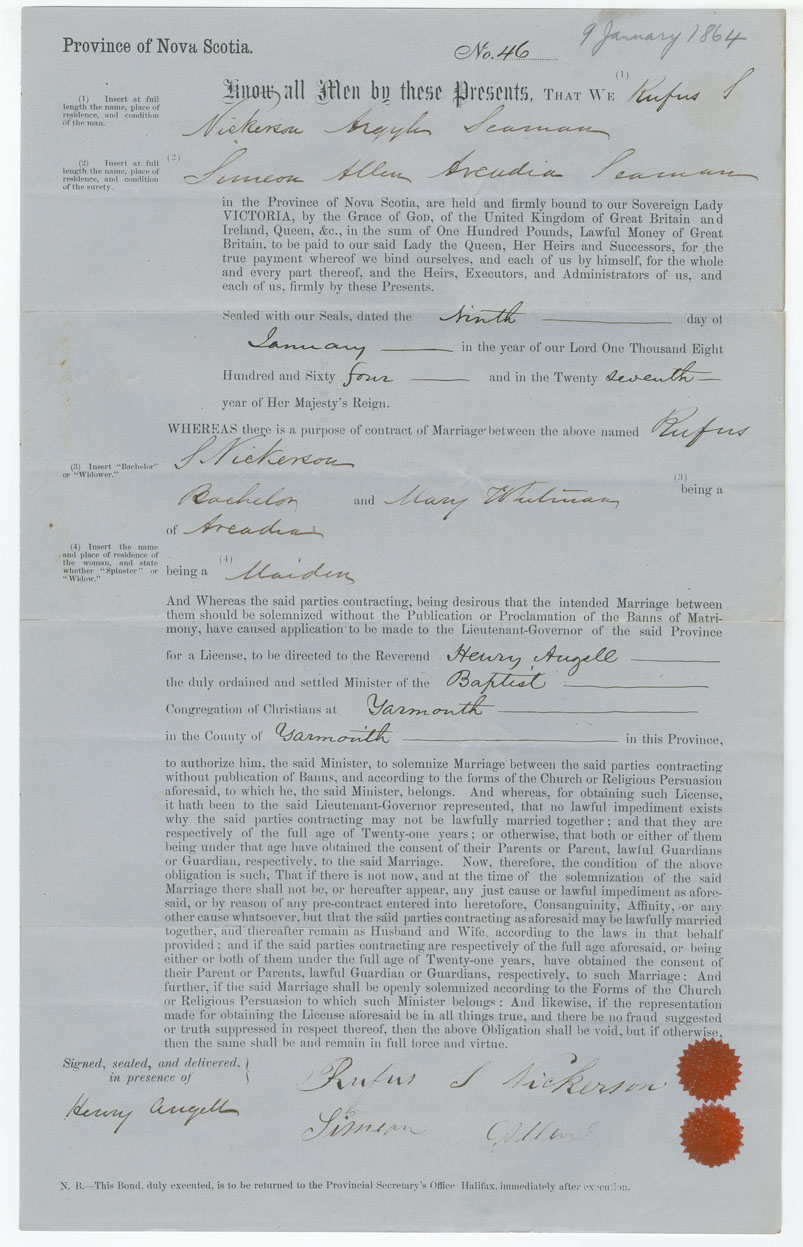 9 January 1864
Province of Nova Scotia.
No. 46
Know all Men by these Presents, THAT WE (1) Rufus S
(1) Insert at full length the name, place of residence, and condition of the man.
Nickerson Argyle Seaman
(2) Insert at full length the name, place of residence, and condition of the surety.
(2) Simeon Allen Arcadia Seaman
in the Province of Nova Scotia, are held and firmly bound to our Sovereign Lady
VICTORIA, by the Grace of GOD, of the United Kingdom of Great Britain and
Ireland, Queen, &c., in the sum of One Hundred Pounds, Lawful Money of Great
Britain, to be paid to our said Lady the Queen, Her Heirs and Successors, for the
true payment whereof we bind ourselves, and each of us by himself, for the whole
and every part thereof, and the Heirs, Executors, and Administrators of us, and
each of us, firmly by these Presents.
Sealed with our Seals, dated the Ninth day of
January in the year of our Lord One Thousand Eight
Hundred and Sixty four and in the Twenty seventh
year of Her Majesty's Reign.
WHEREAS there is a purpose of contract of Marriage between the above named Rufus
S Nickerson
(3) Insert "Bachelor" or "Widower."
(3) being a
Bachelor and Mary
of Arcadia
(4) Insert the name and place of residence of the woman, and state whether "Spinster" or "Widow."
being a (4) Maiden
And Whereas the said parties contracting, being desirous that the intended Marriage between
them should be solemnized without the Publication or Proclamation of the Banns of Matri-
mony, have caused application to be made to the Lieutenant-Governor of the said Province
for a License, to be directed to the Reverend Henry Angell
the duly ordained and settled Minister of the Baptist
Congregation of Christians at Yarmouth
in the County of Yarmouth in this Province,
to authorize him, the said Minister, to solemnize Marriage between the said parties contracting
without publication of Banns, and according to the forms of the Church or Religious Persuasion
aforesaid, to which he, the said Minister, belongs. And whereas, for obtaining such License,
it hath been to the said Lieutenant-Governor represented, that no lawful impediment exists
why the said parties contracting may not be lawfully married together; and that they are
respectively of the full age of Twenty-one years; or otherwise, that both or either of them
being under that age have obtained the consent of their Parents or Parent, lawful Guardians
or Guardian, respectively, to the said Marriage. Now, therefore, the condition of the above
obligation is such, That if there is not now, and at the time of the solemnization of the said
Marriage there shall not be, or hereafter appear, any just cause or lawful impediment as afore-
said, or by reason of any pre-contract entered into heretofore, Consanguinity, Affinity, or any
other cause whatsoever, but that the said parties contracting as aforesaid may be lawfully married
together, and thereafter remain as Husband and Wife, according to the laws in that behalf
provided; and if the said parties contracting are respectively of the full age aforesaid, or being
either or both of them under the full age of Twenty-one years, have obtained the consent of
their Parent or Parents, lawful Guardian or Guardians, respectively, to such Marriage: And
further, if the said Marriage shall be openly solemnized according to the Forms of the Church
or Religious Persuasion to which such Minister belongs: And likewise, if the representation
made for obtaining the License aforesaid be in all things true, and there be no fraud suggested
or truth suppressed in respect thereof, then the above Obligation shall be void, but if otherwise,
then the same shall be and remain in full force and virtue.
Signed, sealed, and delivered, in presence of
Rufus S Nickerson
Henry Angell
Simeon Allen
N. B.—This Bond, duly executed, is to be returned to the Provincial Secretary's Office Halifax, immediately after execution.